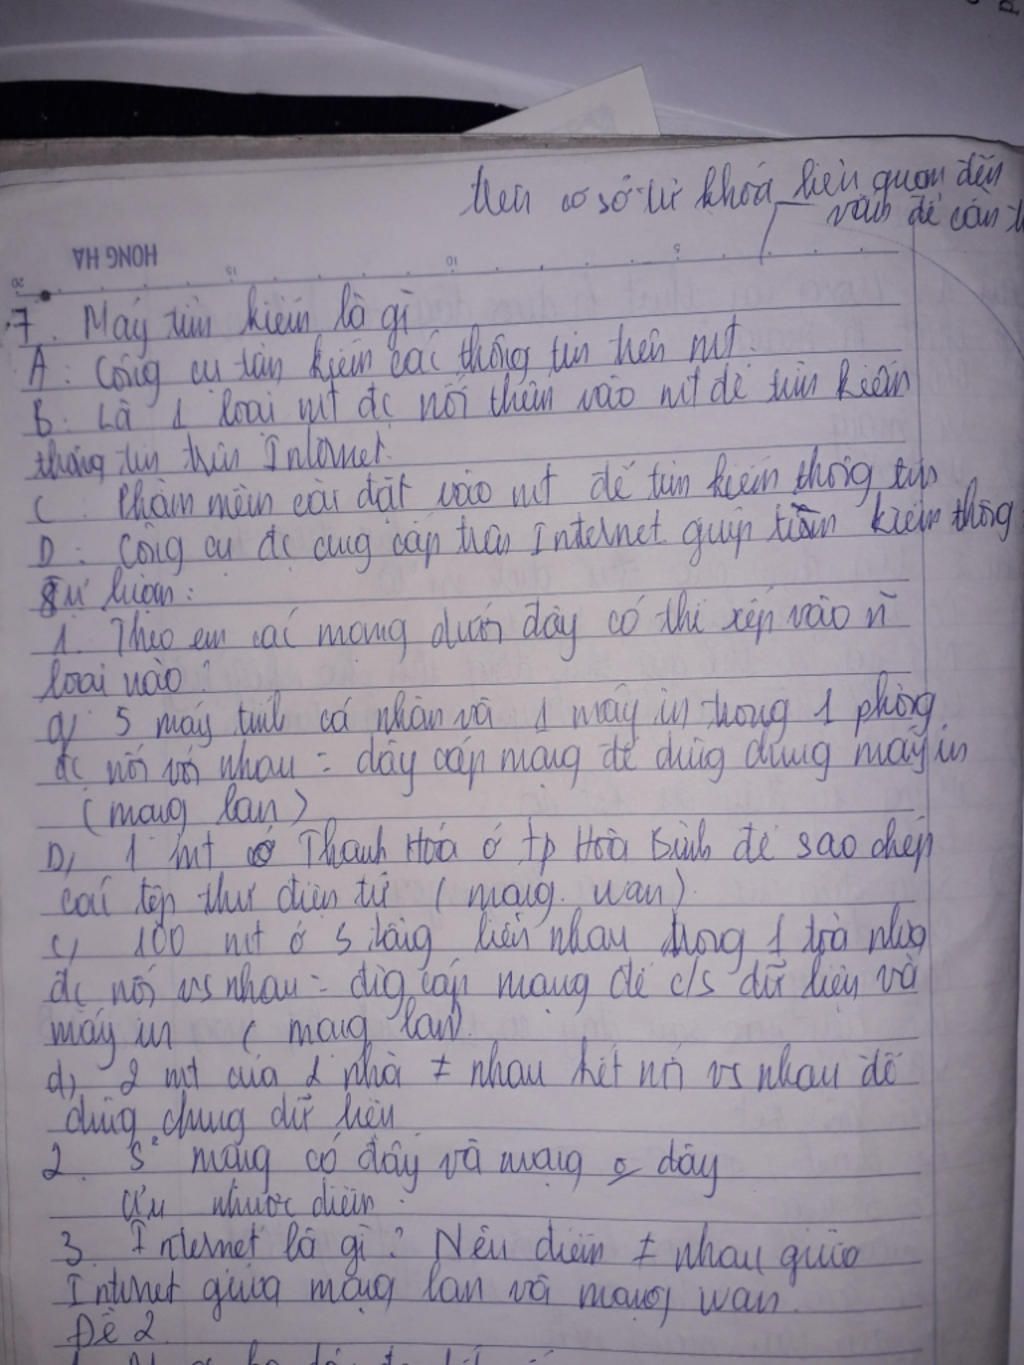 trên cơ sở từ khoá liên quan đến
vấn đề cần t
HONG HA
20 15 10 5
7. Máy tìm kiếm là gì
A: Công cụ tìm kiếm các thông tin trên mt.
B: Là 1 loại mt đc nối thêm vào mt để tìm kiếm
thông tin trên Internet.
C Phần mềm cài đặt vào mt để tìm kiếm thông tin
D: Công cụ đc cung cấp trên Internet giúp tìm kiếm thông
Tự luận:
1. Theo em các mạng dưới đây có thể xếp vào n~
loại nào?
a) 5 máy tính cá nhân và 1 máy in trong 1 phòng
đc nối với nhau = dây cáp mạng để dùng chung máy in
(mạng lan)
b, 1 mt ở Thanh Hóa ở tp Hòa Bình để sao chép
các tệp thư điện tử (mạng wan).
c, 100 mt ở 5 tầng liền nhau trong 1 tòa nhà
đc nối vs nhau = dig cáp mạng để c/s dữ liệu và
máy in (mạng lan).
d, 2 mt của 2 nhà ≠ nhau kết nối vs nhau để
dùng chung dữ liệu
2. S² mạng có dây và mạng dây
Ưu nhược điểm:
3. Internet là gì? Nêu điểm ≠ nhau giữa
Internet giữa mạng lan và mạng wan.
Đề 2